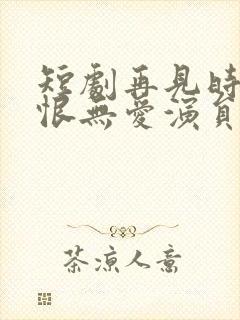 短劇再見時
恨無愛演員
茶凉人意